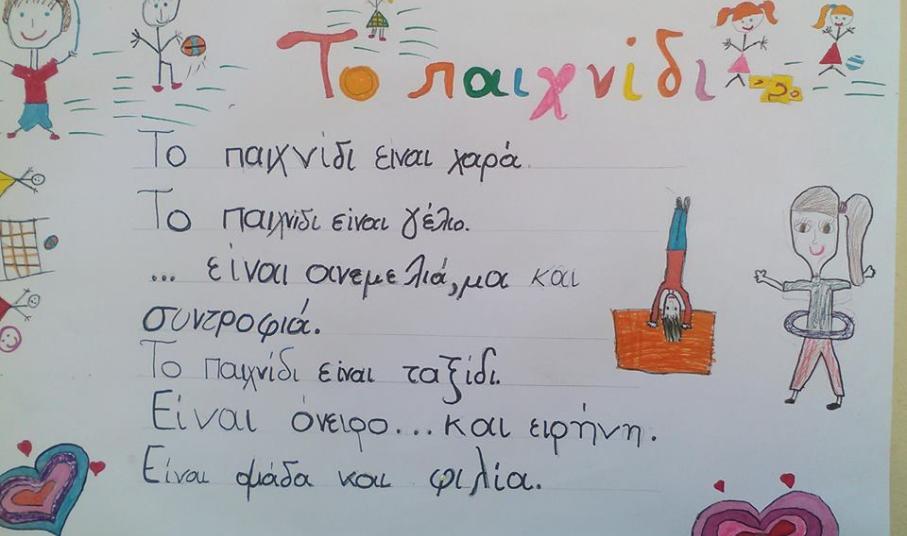 Το παιχνίδι
Το παιχνίδι είναι χαρά.
Το παιχνίδι είναι γέλιο.
... είναι ανεμελιά, μα και
συντροφιά.
Το παιχνίδι είναι ταξίδι.
Είναι όνειρο... και ειρήνη.
Είναι ομάδα και φιλία.